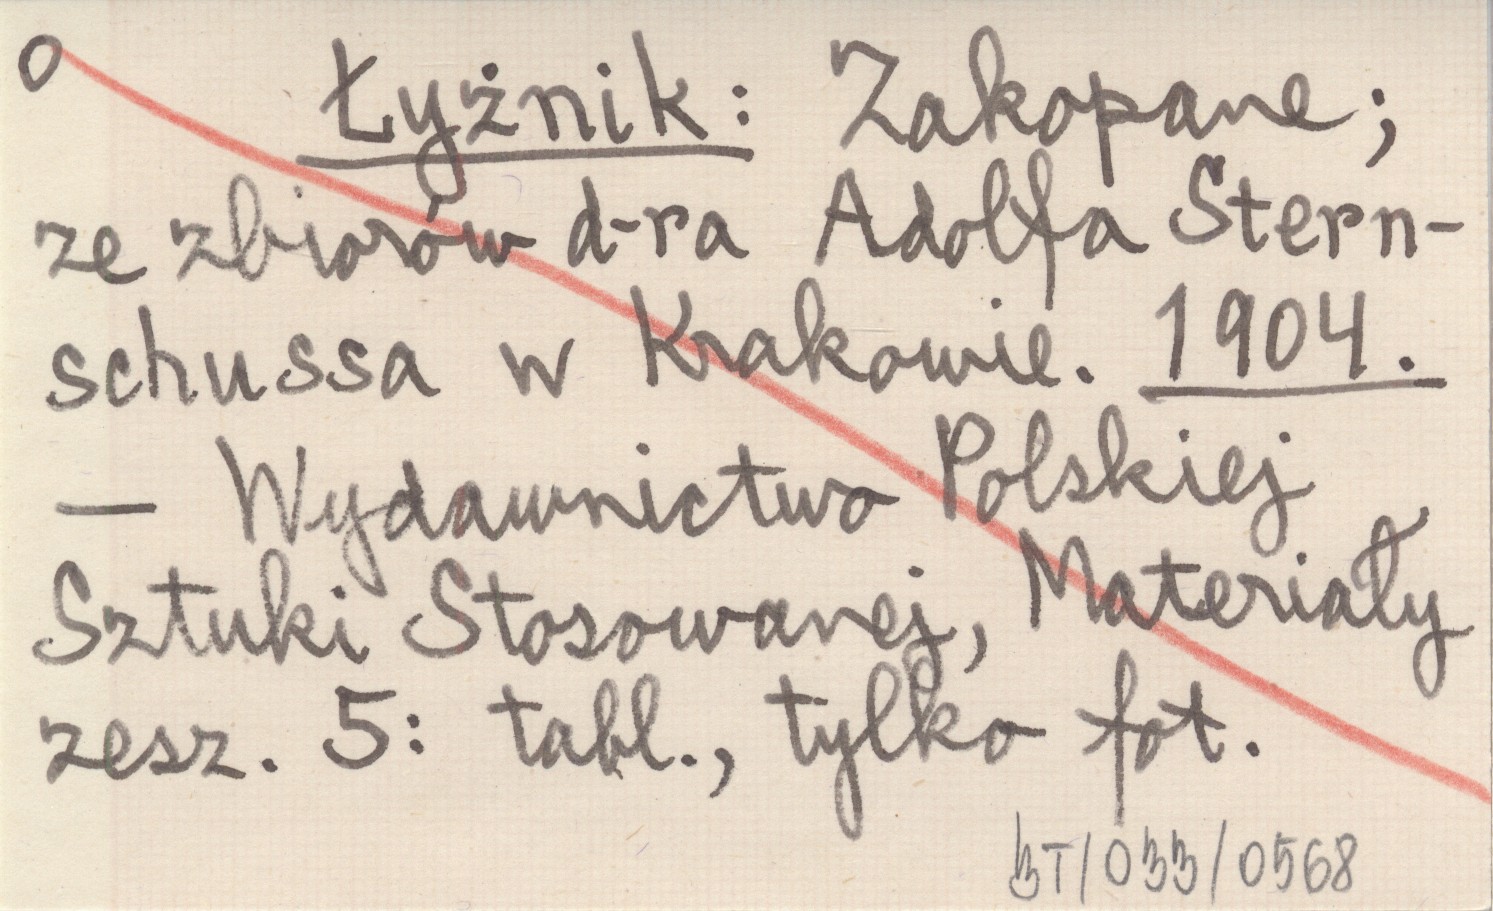 o Łyżnik: Zakopane;
ze zbiorów d-ra Adolfa Stern-
schussa w Krakowie. 1904.
— Wydawnictwo Polskiej
Sztuki Stosowanej, Materiały
zesz. 5: tabl., tylko fot.
/033/0568